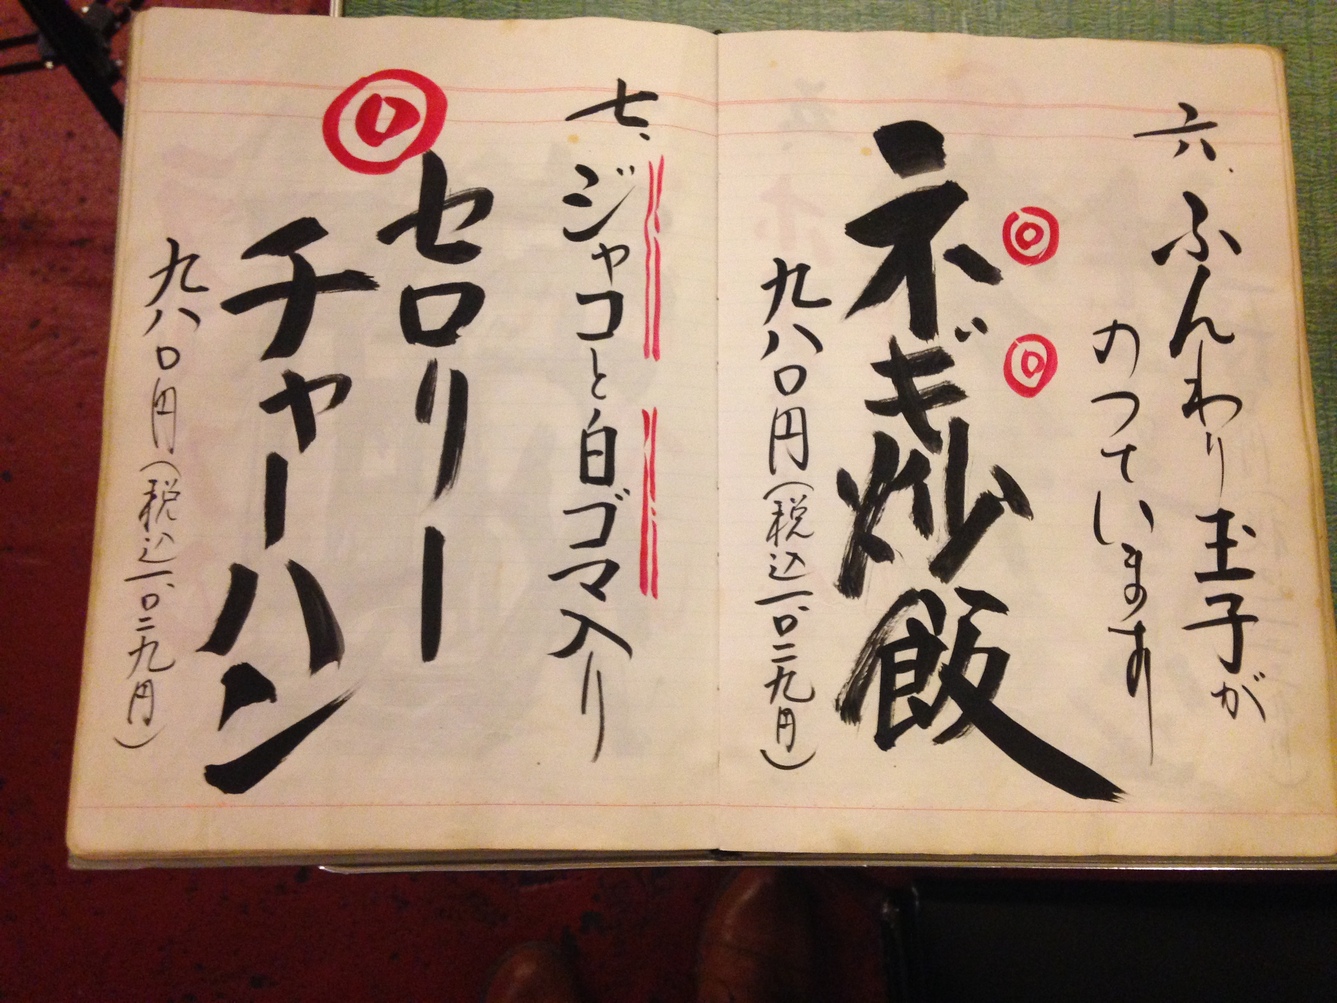 六、ふんわり玉子が
のつています
ネギ炒飯
九八〇円(税込一、〇二九円)
七、ジャコと白ゴマ入り
セロリー
チャーハン
九八〇円(税込一、〇二九円)